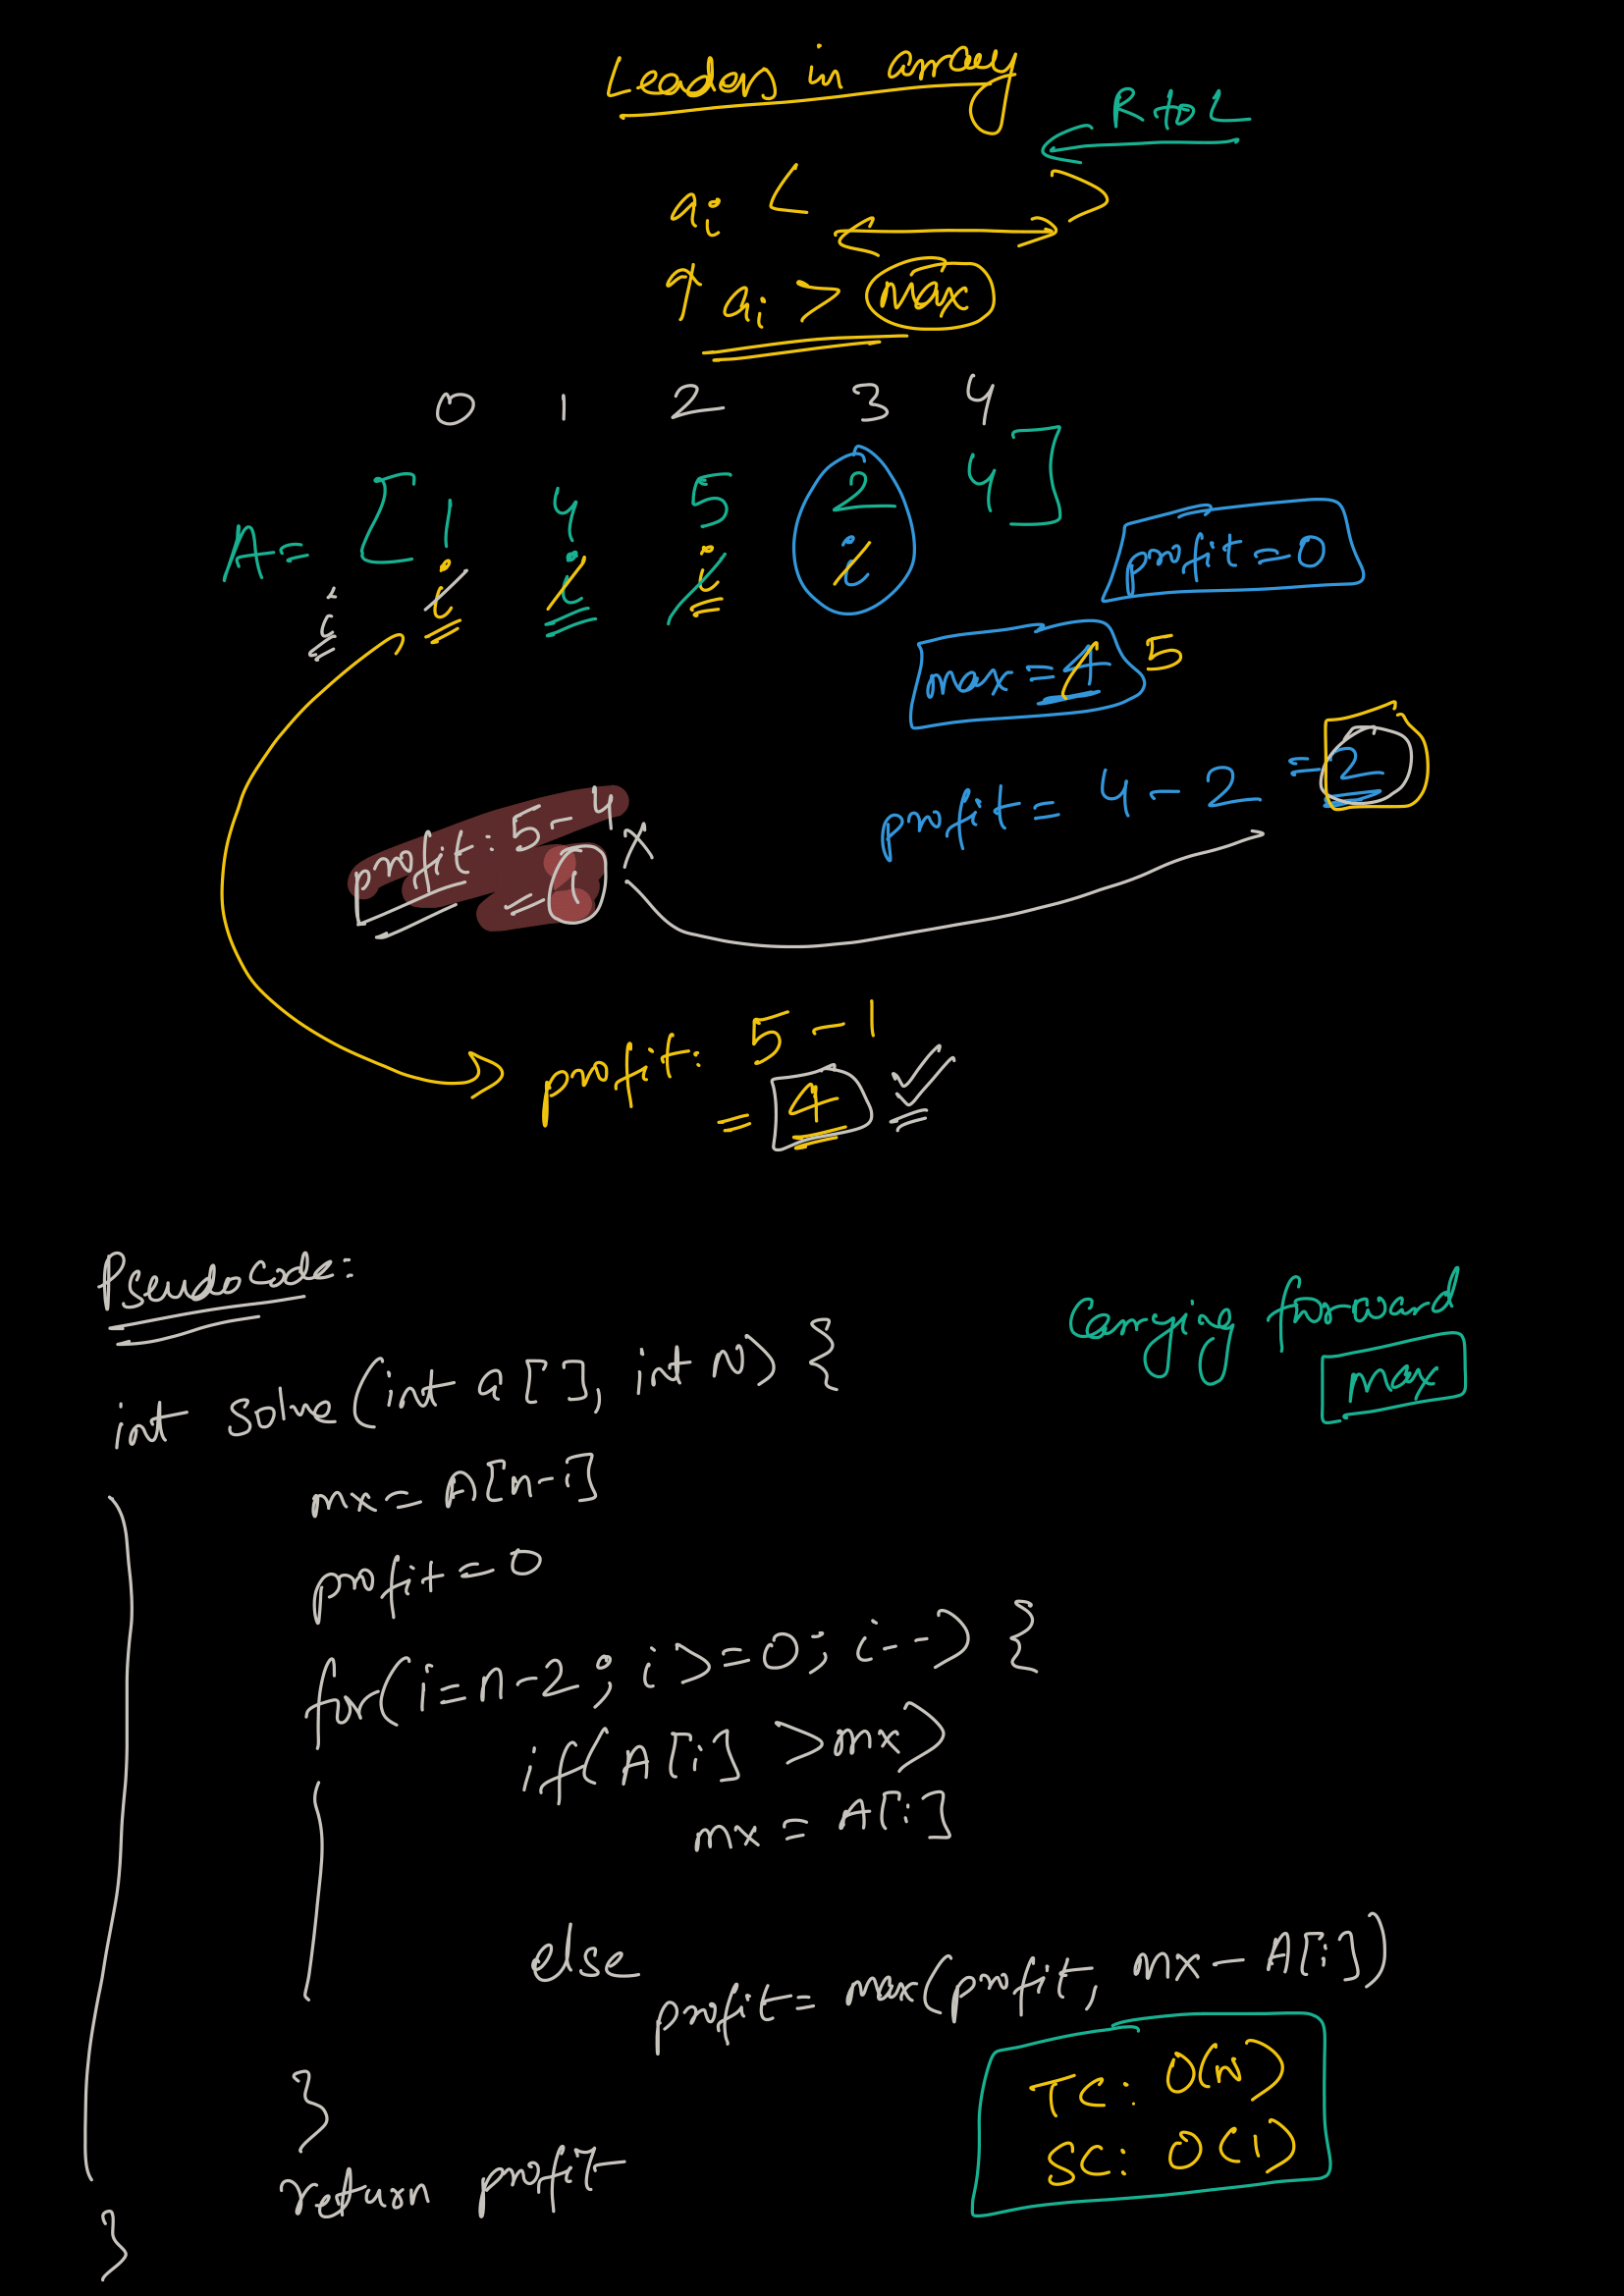 Leaders in array
R to L
ai < >
↑ ai > max
0 1 2 3 4
A = [ 1 4 5 2 4 ]
i i i i i
profit = 0
max = 4 5
profit = 4 - 2 = 2
profit: 5 - 4 x
= 1
profit: 5 - 1
= 4 ✓
Pseudocode:
Carrying forward
max
int solve (int a[], int N) {
mx = A[n-1]
profit = 0
for(i=n-2; i>=0; i--) {
if(A[i] > mx)
mx = A[i]
else
profit = max(profit, mx - A[i])
}
return profit
}
TC: O(N)
SC: O(1)